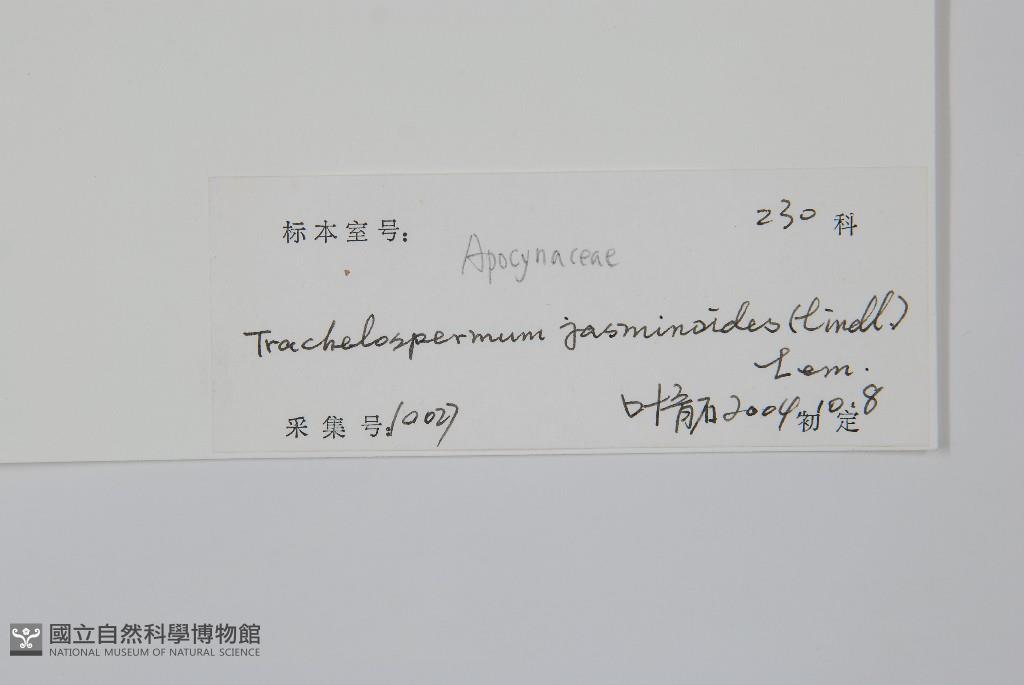 标本室号: 230 科
Apocynaceae
Trachelospermum jasminoides (Lindl.)
Lem.
采集号: 10027 叶育石 2004.10.8 初定
國立自然科學博物館
NATIONAL MUSEUM OF NATURAL SCIENCE